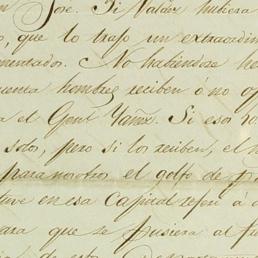 n José. Si Valdéz hubiera
o, que lo trajo un extraordin
mentados. No habiéndose he
uenta hombres reciben ó no op
a el Genl Yañz. Si esos 
solos, pero si los reciben, el
para nosotros el golfo de
tuve en esa Capital referí á
ara que se pusiera al fr